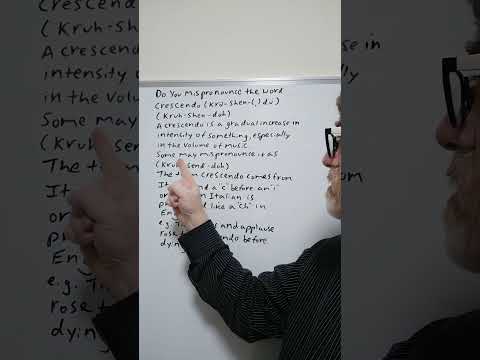 Do You Mispronounce the word
Crescendo (Kru-shen-(,)du)
(Kruh-shen-doh)
A crescendo is a gradual increase in
intensity of something, especially
in the volume of music
Some may mispronounce it as
(Kruh-send-doh)
The term crescendo comes from
a "c" before an "i"
or Italian is
like a "ch" in
e.g. and applause
rose before
dying